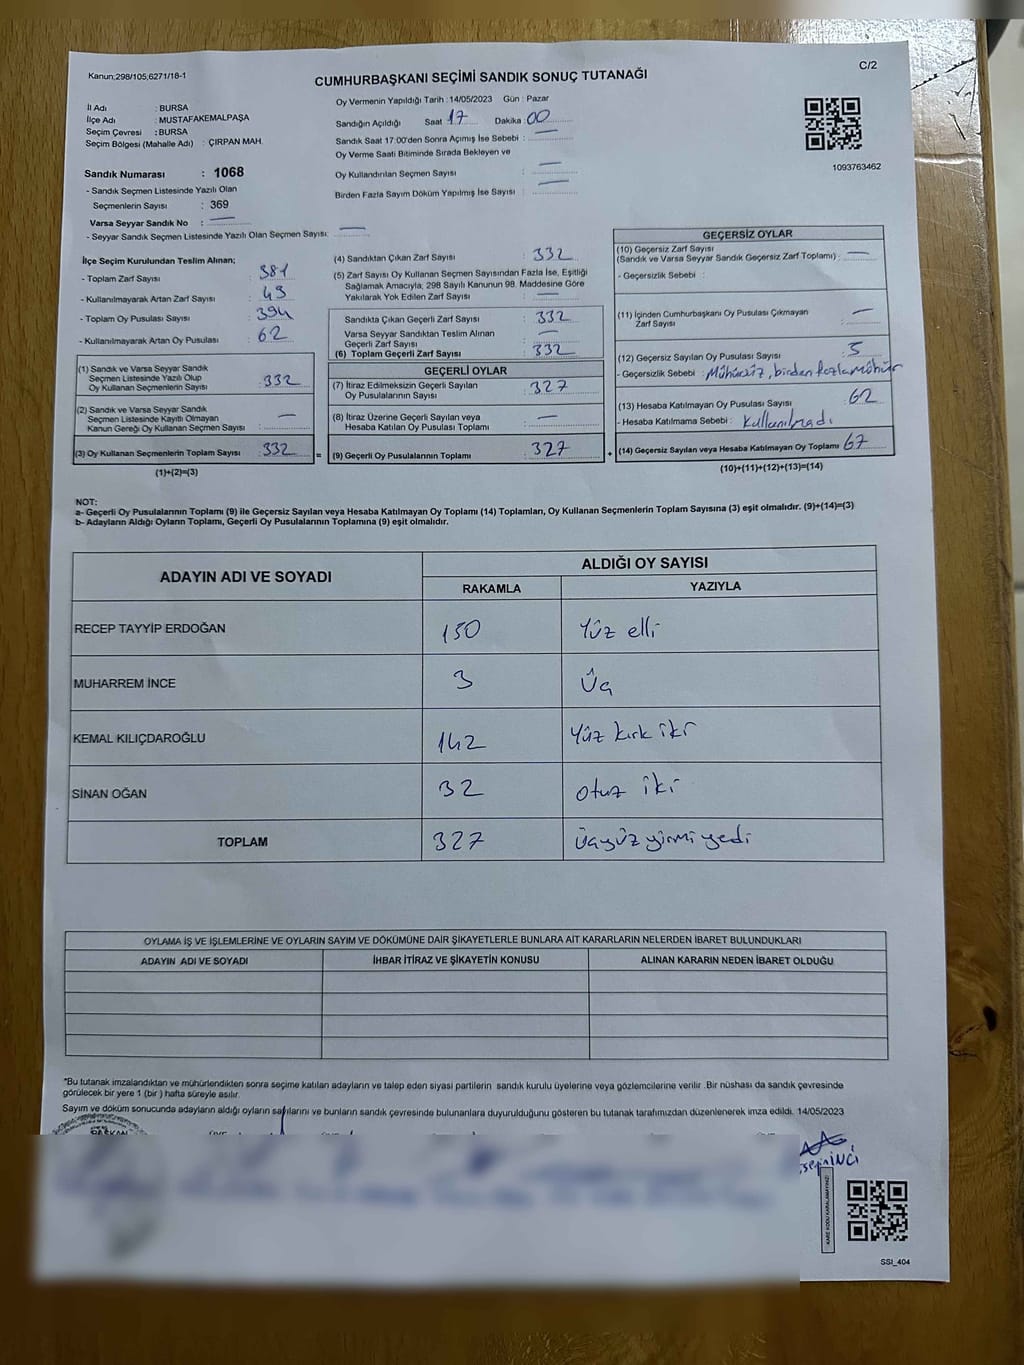 Kanun:298/105,6271/18-1
CUMHURBAŞKANI SEÇİMİ SANDIK SONUÇ TUTANAĞI
C/2
İl Adı : BURSA
İlçe Adı : MUSTAFAKEMALPAŞA
Seçim Çevresi : BURSA
Seçim Bölgesi (Mahalle Adı) : ÇIRPAN MAH.
Sandık Numarası : 1068
- Sandık Seçmen Listesinde Yazılı Olan
Seçmenlerin Sayısı : 369
Varsa Seyyar Sandık No : —
- Seyyar Sandık Seçmen Listesinde Yazılı Olan Seçmen Sayısı: —
Oy Vermenin Yapıldığı Tarih :14/05/2023 Gün : Pazar
Sandığın Açıldığı Saat 17 Dakika :00
Sandık Saat 17:00'den Sonra Açımış İse Sebebi : —
Oy Verme Saati Bitiminde Sırada Bekleyen ve
Oy Kullandırılan Seçmen Sayısı : —
Birden Fazla Sayım Döküm Yapılmış İse Sayısı : —
1093763462
İlçe Seçim Kurulundan Teslim Alınan;
- Toplam Zarf Sayısı : 381
- Kullanılmayarak Artan Zarf Sayısı : 49
- Toplam Oy Pusulası Sayısı : 394
- Kullanılmayarak Artan Oy Pusulası : 62
(1) Sandık ve Varsa Seyyar Sandık
Seçmen Listesinde Yazılı Olup
Oy Kullanan Seçmenlerin Sayısı : 332
(2) Sandık ve Varsa Seyyar Sandık
Seçmen Listesinde Kayıtlı Olmayan
Kanun Gereği Oy Kullanan Seçmen Sayısı : —
(3) Oy Kullanan Seçmenlerin Toplam Sayısı : 332
(1)+(2)=(3)
(4) Sandıktan Çıkan Zarf Sayısı : 332
(5) Zarf Sayısı Oy Kullanan Seçmen Sayısından Fazla İse, Eşitliği
Sağlamak Amacıyla, 298 Sayılı Kanunun 98. Maddesine Göre
Yakılarak Yok Edilen Zarf Sayısı : —
Sandıkta Çıkan Geçerli Zarf Sayısı : 332
Varsa Seyyar Sandıktan Teslim Alınan
Geçerli Zarf Sayısı : —
(6) Toplam Geçerli Zarf Sayısı : 332
GEÇERLİ OYLAR
(7) İtiraz Edilmeksizin Geçerli Sayılan
Oy Pusulalarının Sayısı : 327
(8) İtiraz Üzerine Geçerli Sayılan veya
Hesaba Katılan Oy Pusulası Toplamı : —
= (9) Geçerli Oy Pusulalarının Toplamı : 327
GEÇERSİZ OYLAR
(10) Geçersiz Zarf Sayısı
(Sandık ve Varsa Seyyar Sandık Geçersiz Zarf Toplamı) : —
- Geçersizlik Sebebi :
(11) İçinden Cumhurbaşkanı Oy Pusulası Çıkmayan
Zarf Sayısı : —
(12) Geçersiz Sayılan Oy Pusulası Sayısı : 5
- Geçersizlik Sebebi : Mühürsüz, birden fazla mühür
(13) Hesaba Katılmayan Oy Pusulası Sayısı : 62
- Hesaba Katılmama Sebebi : kullanılmadı
+ (14) Geçersiz Sayılan veya Hesaba Katılmayan Oy Toplamı : 67
(10)+(11)+(12)+(13)=(14)
NOT:
a- Geçerli Oy Pusulalarının Toplamı (9) ile Geçersiz Sayılan veya Hesaba Katılmayan Oy Toplamı (14) Toplamları, Oy Kullanan Seçmenlerin Toplam Sayısına (3) eşit olmalıdır. (9)+(14)=(3)
b- Adayların Aldığı Oyların Toplamı, Geçerli Oy Pusulalarının Toplamına (9) eşit olmalıdır.
ADAYIN ADI VE SOYADI
ALDIĞI OY SAYISI
RAKAMLA YAZIYLA
RECEP TAYYİP ERDOĞAN 150 Yüz elli
MUHARREM İNCE 3 Üç
KEMAL KILIÇDAROĞLU 142 Yüz kırk iki
SİNAN OĞAN 32 Otuz iki
TOPLAM 327 Üçyüz yirmi yedi
OYLAMA İŞ VE İŞLEMLERİNE VE OYLARIN SAYIM VE DÖKÜMÜNE DAİR ŞİKAYETLERLE BUNLARA AİT KARARLARIN NELERDEN İBARET BULUNDUKLARI
ADAYIN ADI VE SOYADI İHBAR İTİRAZ VE ŞİKAYETİN KONUSU ALINAN KARARIN NEDEN İBARET OLDUĞU
*Bu tutanak imzalandıktan ve mühürlendikten sonra seçime katılan adayların ve talep eden siyasi partilerin sandık kurulu üyelerine veya gözlemcilerine verilir .Bir nüshası da sandık çevresinde
görülecek bir yere 1 (bir ) hafta süreyle asılır.
Sayım ve döküm sonucunda adayların aldığı oyların sayılarını ve bunların sandık çevresinde bulunanlara duyurulduğunu gösteren bu tutanak tarafımızdan düzenlenerek imza edildi. 14/05/2023
BAŞKAN
KARE KODU KARALAMAYINIZ
SSI_404